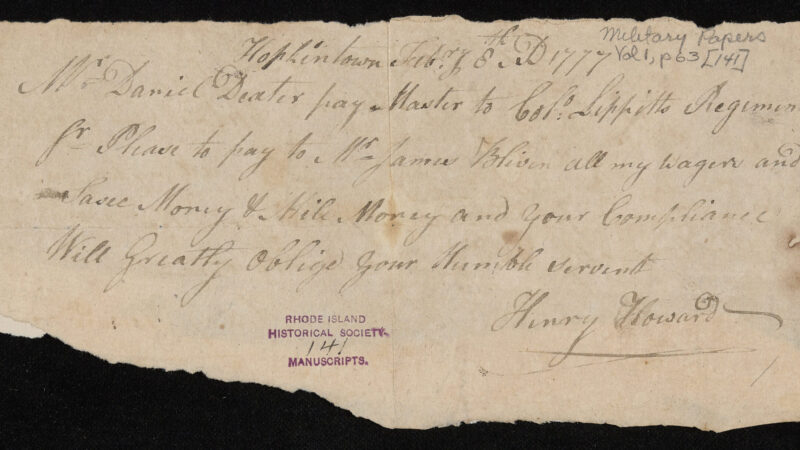 Military Papers
Vol 1, p 63 [141]
Hopkintown Febry 8th AD 1777
Mr Daniel Dexter pay Master to Colo. Lippitts Regimen
Sr Please to pay to Mr James Bliven all my wages and
Sase Money & Mile Money and your Compliance
Will Greatly Oblige your Humble servent
Henry Howard
RHODE ISLAND
HISTORICAL SOCIETY
141
MANUSCRIPTS.